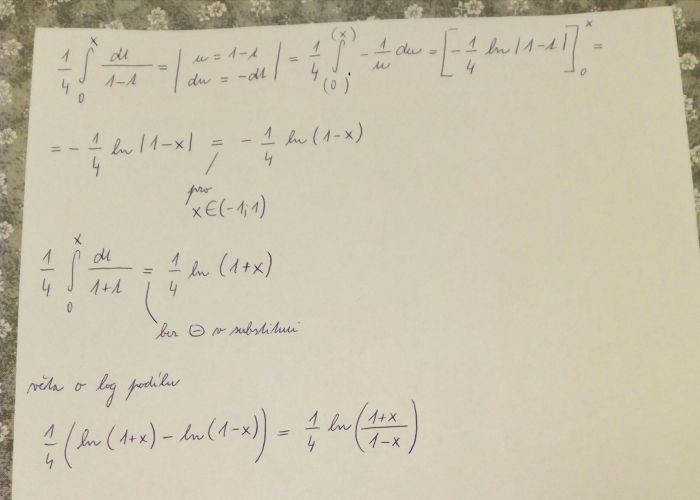 1/4 ∫₀ˣ dt/(1-t) = | u = 1-t, du = -dt | = 1/4 ∫₍₀₎⁽ˣ⁾ -1/u du = [-1/4 ln|1-t|]₀ˣ =
= - 1/4 ln|1-x| = - 1/4 ln(1-x)
pro
x∈(-1;1)
1/4 ∫₀ˣ dt/(1+t) = 1/4 ln (1+x)
bez ⊖ v substituci
věta o log podílu
1/4 (ln(1+x) - ln(1-x)) = 1/4 ln((1+x)/(1-x))